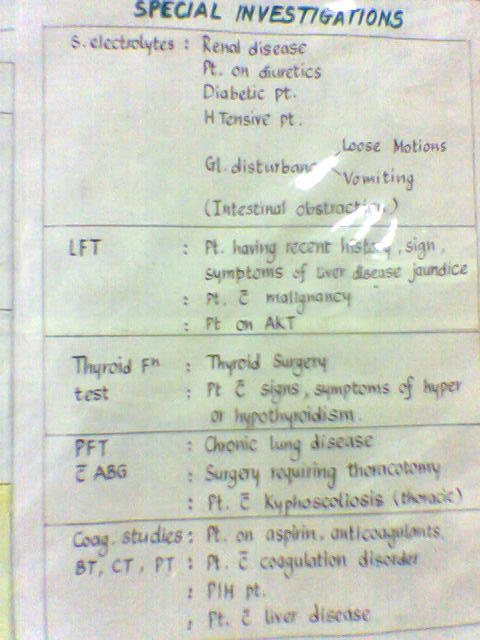 SPECIAL INVESTIGATIONS
S. electrolytes : Renal disease
Pt. on diuretics
Diabetic pt.
H Tensive pt.
Loose Motions
GI. disturbanc
Vomiting
(Intestinal obstraction)
LFT : Pt. having recent history, sign,
symptoms of liver disease jaundice
: Pt. c̄ malignancy
: Pt on AKT
Thyroid Fⁿ : Thyroid Surgery
test : Pt c̄ signs, symptoms of hyper
or hypothyroidism.
PFT : Chronic lung disease
c̄ ABG : Surgery requiring thoracotomy
: Pt. c̄ Kyphoscoliosis (thoracic)
Coag. studies : Pt. on aspirin, anticoagulants,
BT, CT, PT : Pt. c̄ coagulation disorder
: PIH pt.
: Pt. c̄ liver disease